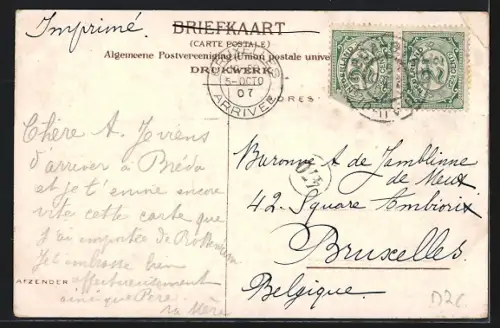 Imprimé.
BRIEFKAART
(CARTE POSTALE)
Algemeene Postvereeniging (Union postale unive
DRUKWERK
BRUXELLES
5-OCTO
07
ARRIVEE
DRES
NEDERLAND
NEDERLAND
Chère A. J
d'arriver à Bréda
et je t'envoie encore
vite cette carte que
j'ai emportée de Rotterdam
Je t'embrasse bien
affectueusement
ainsi que Père.
ta Mère
AFZENDER
Baronne A de Jamblinne
de Meux
42. Square Ambiorix
Bruxelles
Belgique.
D2C.